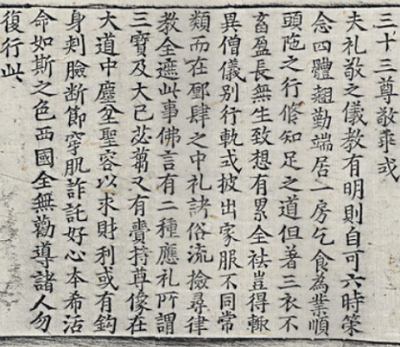 三十三尊敬乖式
夫礼敬之儀教有明則自可六時策
念四體翹勤端居一房乞食為業順
頭陁之行修知足之道但著三衣不
畜盈長無生致想有累全祛豈得輙
異僧儀別行軌式披出家服不同常
類而在鄽肆之中礼諸俗流撿尋律
教全遮此事佛言有二種應礼所謂
三寶及大己苾蒭又有賷持尊像在
大道中塵坌聖容以求財利或有鈎
身刺臉断節穿肌詐託好心本希活
命如斯之色西國全無勸導諸人勿
復行此